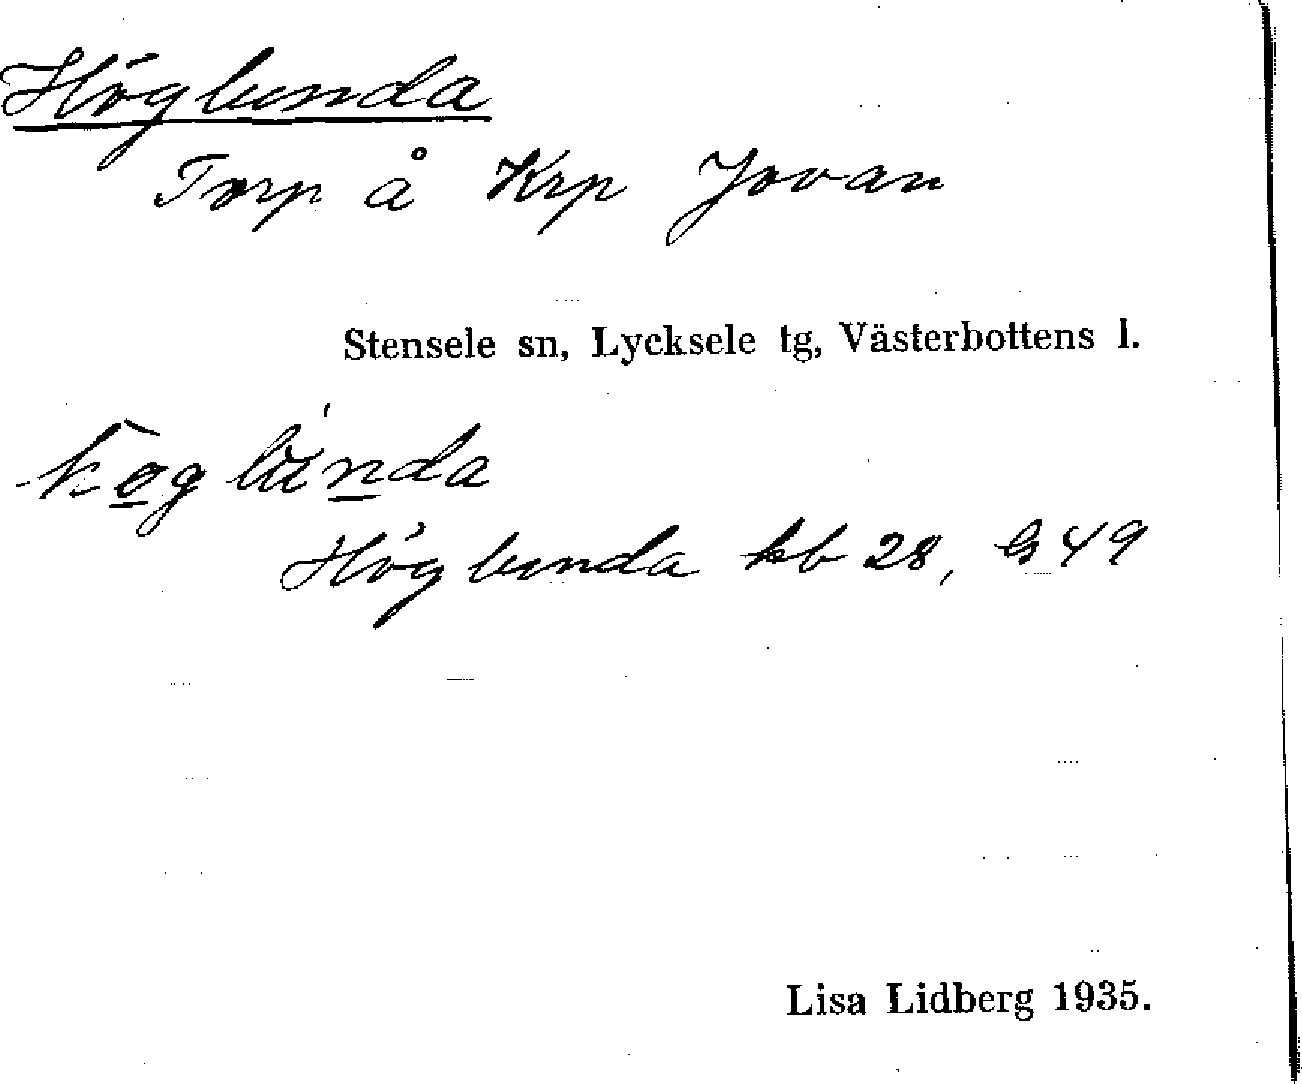 Höglunda
Torp å Krp Jovan
Stensele sn, Lycksele tg, Västerbottens l.
Höglunda kb 28, G 49
Lisa Lidberg 1935.